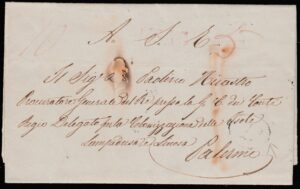 A. S. E.
Il Sig.r D. Paolino Nicastro
Procuratore Generale del Re presso la G. C. dei Conti
Regio Delegato per la Colonizzazione delle Isole
Lampedusa e Linosa
Palermo